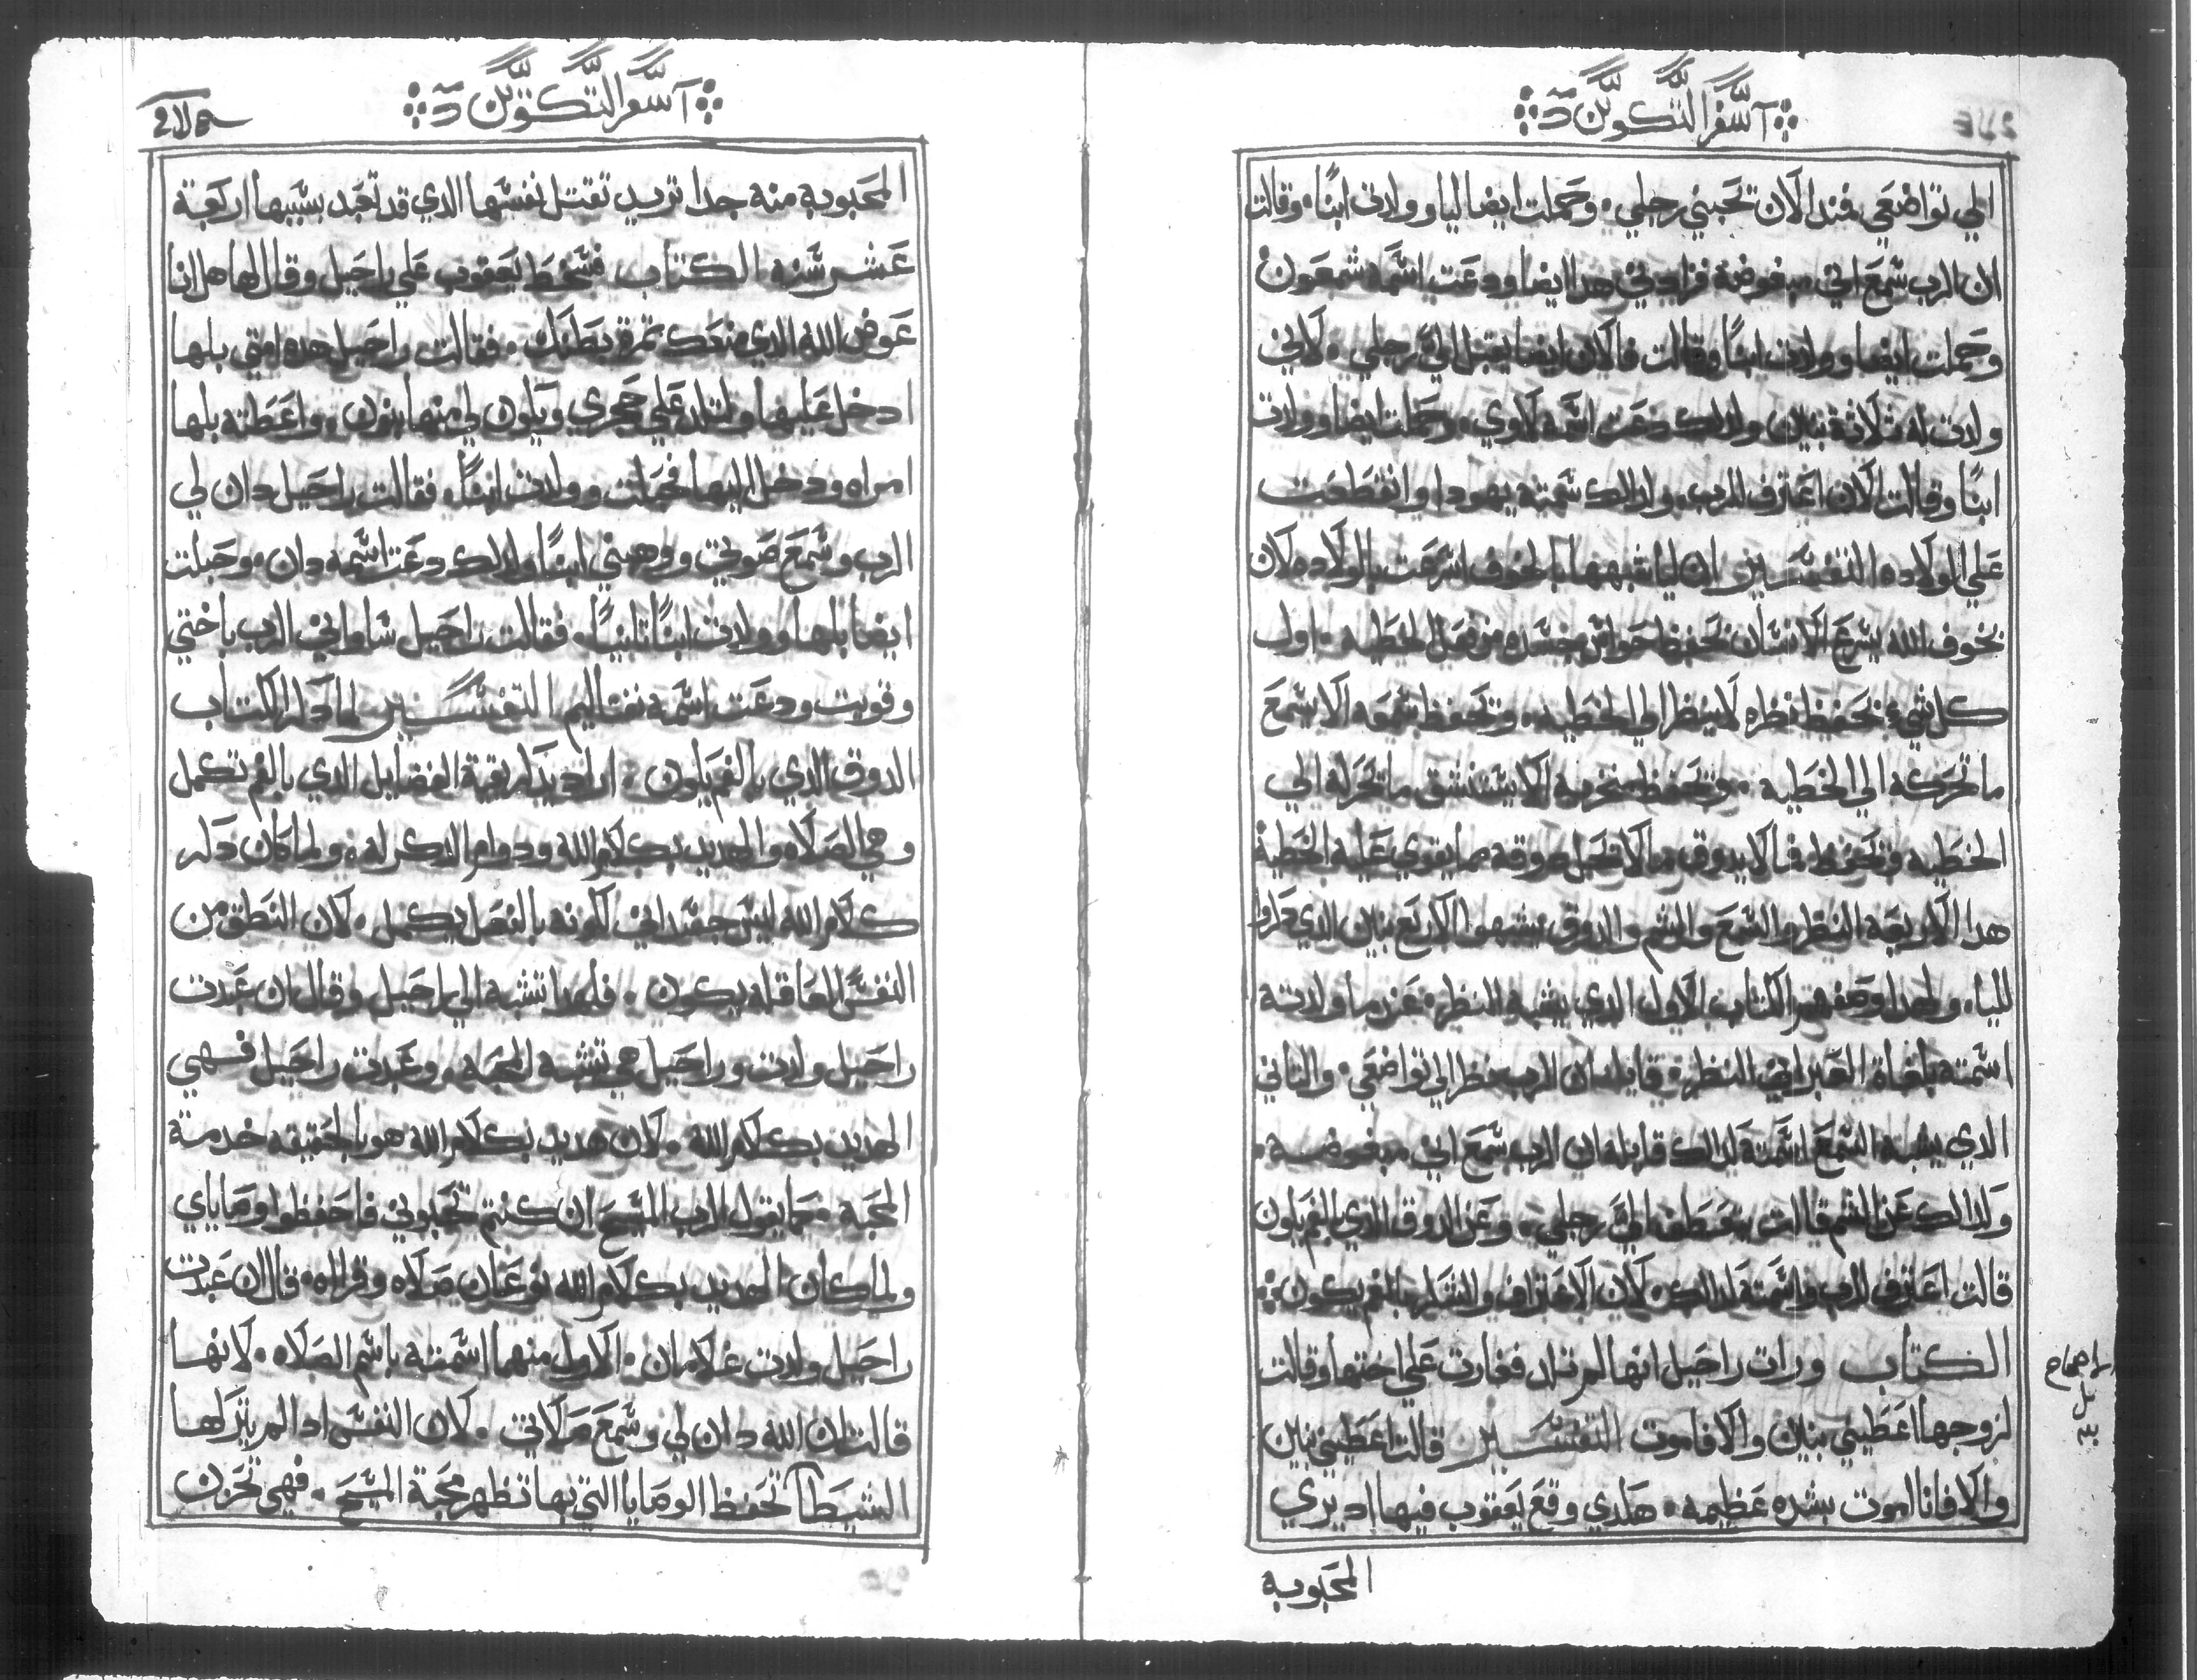 سفر التكوين
الي تواضعي فمند الآن تحبني رجلي. وحملت ايضا ليا وولدت ابنًا. وقالت
ان الرب سمع اني مبغوضة فزادني هدا ايضا ودعت اسمه شمعون
وحملت ايضا وولدت ابنًا وقالت فالان ايضا يقبل اليَّ رجلي. لاني
ولدت له ثلاثة بنين ولدلك دعت اسمه لاوي. وحملت ايضا وولدت
ابنًا وقالت الآن اعترف للرب. ولدلك سمته يهودا وانقطعت
علي الولاده التفسير ان ليا شبهها بالخوف اسرعت بالولاده لان
بخوف الله يسرع الانسان تحفظ حواس جسده من فعل الخطيه. اول
كل شي يحفظ نظره لا ينظر الي الخطيه. وتحفظ سمعه الا يسمع
ما تحركه الي الخطيه. وتحفظ منخريه الا يستنشق ما تحركه الي
الخطيه وتحفظ فاه لا يدوق ما لا تحل دوقه مما يقوي عليه الخطية
هدا الاربعة النظر والسمع والشم والدوق يشبهوا الاربع بنين الدي
لليا. ولهدا وصفهم الكتاب الاول الدي يشبه النظر. عندما ولدته
اسمته بلغاة العبراني النظر. قايله ان الرب نظر الي تواضعي. والتاني
الدي يشبه السمع اسمته لدلك قايله ان الرب سمع اني مبغوضه.
ولدلك عن الشم قالت يتعطف اليَّ رجلي. وعن الدوق الدي بالفم يكون
قالت اعترف للرب واسمته لدلك. لان الاعتراف والشكر بالفم يكون
الكتاب ورات راحيل انها لم تلد فغارت علي اختها وقالت
لزوجها اعطيني بنين والا فاموت التفسير قالت اعطيني بنين
والا فانا اموت بشده عظيمه. هكدي وقع يعقوب فيها اد يري
المحبوبه
سفر التكوين
المحبوبه منه جدا تريد تقتل نفسها الدي قد تعبد بسببها اربعة
عشر سنه الكتاب فسخط يعقوب علي راحيل وقال لها هل انا
عوض الله الدي منعك ثمرة بطنك. فقالت راحيل هده امتي بلها
ادخل عليها ولتلد علي حجري ويكون لي منها بنون. واعطته بلها
امراه ودخل اليها فحبلت وولدت ابنًا. فقالت راحيل دان لي
الرب وسمع صوتي ووهبني ابنًا ولدلك دعت اسمه دان. وحبلت
ايضا بلها وولدت ابنًا تانيًا. فقالت راحيل ساواني الرب باختي
وقويت ودعت اسمه نفتاليم التفسير لما دكر الكتاب
الدوق الدي بالفم يكون. اراد يدكر بقية الفضايل الدي بالفم تكمل
وهي الصلاه والهديد بكلام الله ودوام الدكر له. ولما كان دكر
كلام الله ليس جسداني لكونه بالفعل يكمل. لان النطق من
النفس العاقله يكون. فلهدا تنسبه الي راحيل وقال ان عبدت
راحيل ولدت وراحيل هي تشبه المحبه. وعبدت راحيل فهي
الهديد بكلام الله. لان هديد بكلام الله هو بالحقيقه خدمة
المحبة. كما يقول الرب المسيح ان كنتم تحبوني فاحفظوا وصاياي
ولما كان الهديد بكلام الله نوعان صلاه وقراه. قال ان عبدت
راحيل ولدت غلامان. الاول منهما اسمته باسم الصلاه. لانها
قالت ان الله دان لي وسمع صلاتي. لان النفس ادا لم يتركها
الشيطان تحفظ الوصايا التي بها تظهر محبة المسيح. فهي تحزن